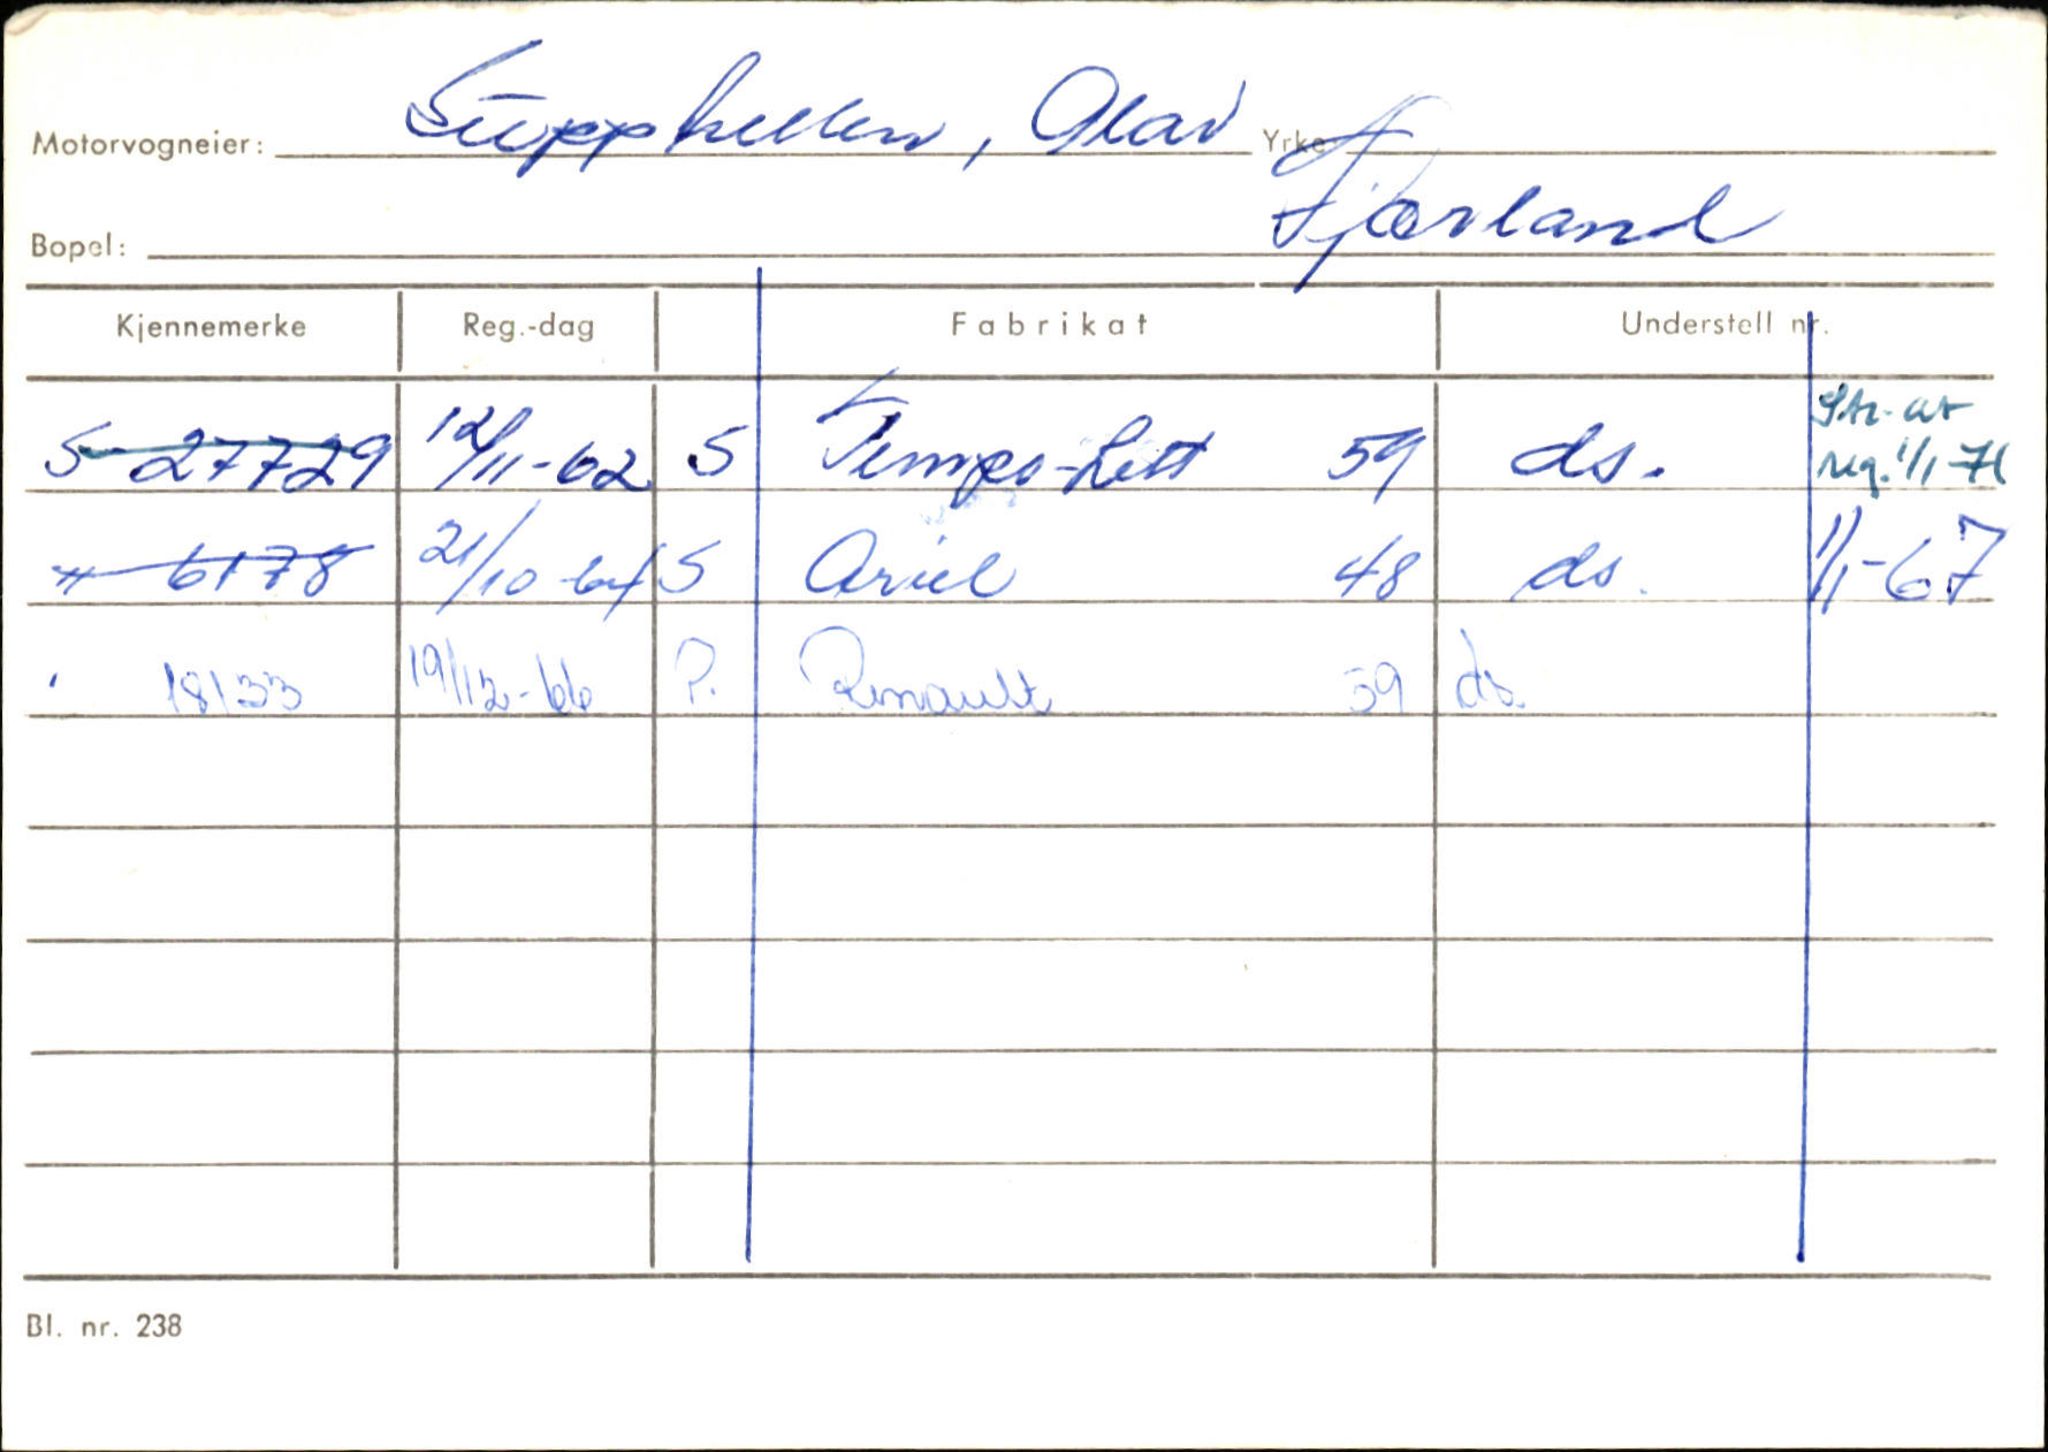 Motorvogneier: Supphellen, Olav Yrke
Bopel: Fjærland
Kjennemerke Reg.-dag Fabrikat Understell nr.
S 27729 12/11-62 S Tempo-Lett 59 ds. Str. av reg. 1/1-71
" 6178 21/10-64 S Ariel 48 ds. 1/1-67
' 18133 19/12-66 P. Renault 59 ds.
Bl. nr. 238